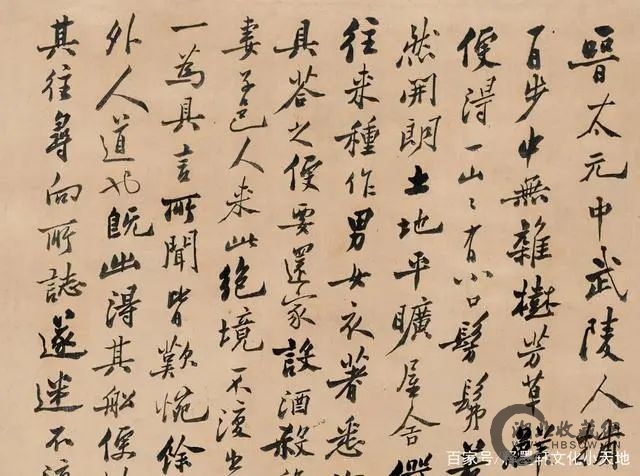 晉太元中武陵人
百步中無雜樹芳草
便得一山々有小口髣髴
然開朗土地平曠屋舍
往来種作男女衣著悉
具荅之便要還家設酒殺
妻子邑人来此絶境不復出
一為具言所聞皆歎惋餘
外人道也既出得其船便
其往尋向所誌遂迷不
百家号/墨轩文化小天地